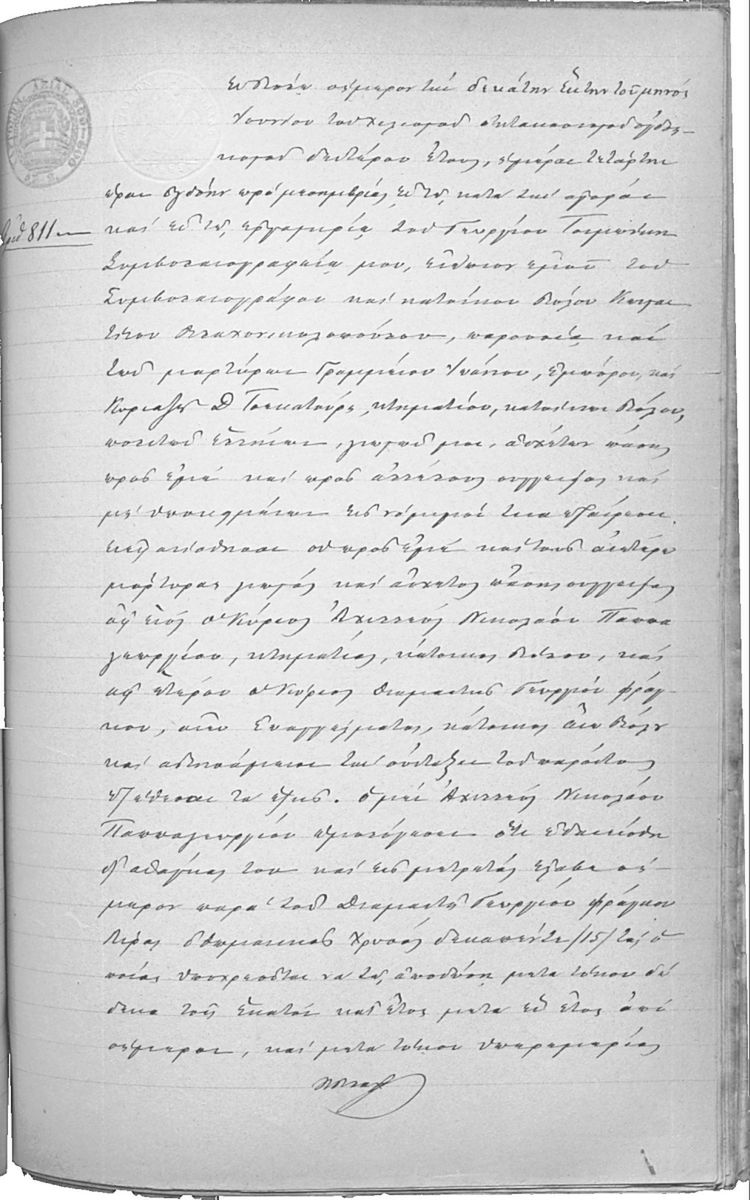 Ἐν Βόλῳ σήμερον τὴν δεκάτην ἕκτην τοῦ μηνὸς
Ἰουνίου τοῦ χιλιοστοῦ ὀκτακοσιοστοῦ ὀγδοη-
κοστοῦ δευτέρου ἔτους, ἡμέραν τετάρτην
ὥραν πρὸ μεσημβρίας ἐν τῷ κατὰ τὴν ἀγορὰν
καὶ ἐν τῷ ἐργαστηρίῳ τοῦ Γεωργίου
Ἀριθ 811
Συμβολαιογραφείῳ μου, ἐνώπιον ἐμοῦ τοῦ
Συμβολαιογράφου καὶ κατοίκου Βόλου
παρουσίᾳ καὶ
τῶν μαρτύρων Γραμμένου ἐμπόρου, καὶ
Κυριαζῆ Δ κτηματίου, κατοίκων Βόλου,
πολιτῶν Ἑλλήνων, γνωστῶν μοι, ἀσχέτων πάσης
πρὸς ἐμὲ καὶ πρὸς ἀλλήλους συγγενείας καὶ
μὴ ὑποκειμένων εἰς νόμιμόν τινα ἐξαίρεσιν
ἐνεφανίσθησαν οἱ πρὸς ἐμὲ καὶ τοὺς ἀνωτέρω
μάρτυρας γνωστοὶ καὶ ἄσχετοι πάσης συγγενείας
ἀφ' ἑνὸς ὁ Κύριος Ἀχιλλεὺς Νικολάου Παππα
γεωργίου, κτηματίας, κάτοικος Βόλου, καὶ
ἀφ' ἑτέρου ὁ Κύριος Διαμαντῆς Γεωργίου Φράγ-
κου, ἄνευ ἐπαγγέλματος, κάτοικος Ἄνω Βόλου
καὶ αἰτησάμενοι τὴν σύνταξιν τοῦ παρόντος
ἐξέθεσαν τὰ ἑξῆς. ὁ μὲν Ἀχιλλεὺς Νικολάου
Παππαγεωργίου ὡμολόγησεν ὅτι ἐδανείσθη
δι' ἀνάγκας του καὶ εἰς μετρητὰ ἔλαβε σή
μερον παρὰ τοῦ Διαμαντῆ Γεωργίου Φράγκου
λίρας ὀθωμανικὰς χρυσᾶς δεκαπέντε /15/ τὰς ὁ
ποίας ὑποχρεοῦται νὰ τῷ ἀποδώσῃ μετὰ τόκου δώ
δεκα τοῖς ἑκατὸν κατ' ἔτος μετὰ ἓν ἔτος ἀπὸ
σήμερον, καὶ μετὰ τόκου ὑπερημερίας